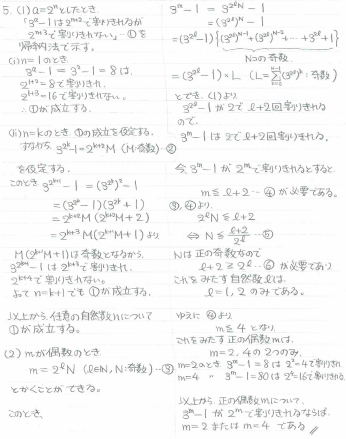 5. (1) a=2ⁿとしたとき
「3^a-1は2^{n+2}で割りきれるが
2^{n+3}で割りきれない。」…①を
帰納法で示す。
(i) n=1のとき
3^a-1=3²-1=8は、
2^{1+2}=8で割りきれ
2^{1+3}=16で割りきれない。
∴①が成立する。
(ii) n=kのとき、①の成立を仮定する。
すなわち 3^{2^k}-1=2^{k+2}M (M:奇数)…②
を仮定する。
このとき、3^{2^{k+1}}-1=(3^{2^k})²-1
=(3^{2^k}-1)(3^{2^k}+1)
=2^{k+2}M(2^{k+2}M+2)
=2^{k+3}M(2^{k+1}M+1)より
M(2^{k+1}M+1)は奇数となるから、
3^{2^{k+1}}-1は2^{k+3}で割りきれ、
2^{k+4}で割りきれない。
よってn=k+1でも①が成立する。
以上から、任意の自然数nについて
①が成立する。
(2) mが偶数のとき
m=2^ℓN (ℓ∈ℕ, N:奇数)…③
とかくことができる。
このとき、
3^m-1=3^{2^ℓN}-1
=(3^{2^ℓ})^N-1
=(3^{2^ℓ}-1){(3^{2^ℓ})^{N-1}+(3^{2^ℓ})^{N-2}+…+3^{2^ℓ}+1}
Nコの奇数
=(3^{2^ℓ}-1)×L
とでき、(1)より
3^{2^ℓ}-1が2でℓ+2回割りきれる
ので、
3^m-1は2でℓ+2回割りきれる。
今、3^m-1が2^mで割りきれるとすると
m≦ℓ+2…④が必要である。
③,④より、
2^ℓN≦ℓ+2
⇔ N≦(ℓ+2)/2^ℓ…⑤
Nは正の奇数なので
ℓ+2≧2^ℓ…⑥が必要であり
これをみたす自然数ℓは、
ℓ=1,2のみである。
ゆえに④より
m≦4となり、
これをみたす正の偶数mは、
m=2,4の2つのみ。
m=2のとき3^m-1=8は2²=4で割りきれ
m=4 〃 3^m-1=80は2⁴=16で割りきれる。
以上から、正の偶数mについて
3^m-1が2^mで割りきれるならば、
m=2またはm=4である